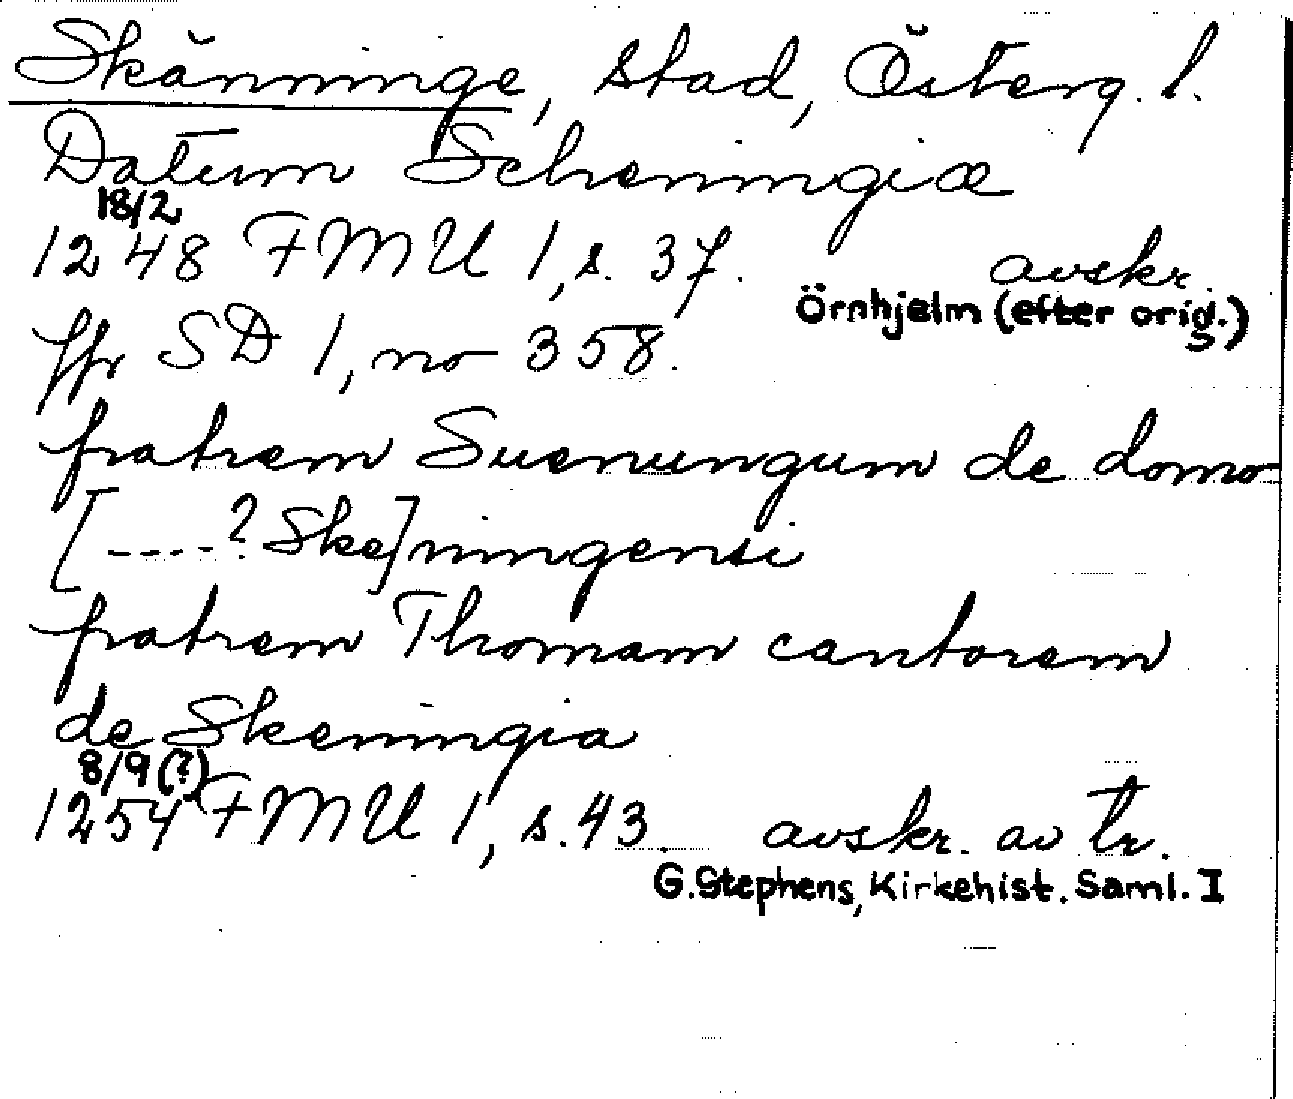 Skänninge, stad, Österg. l.
Datum Scheningiæ
18/2
1248 FMU 1, s. 37. avskr.
Örnhjelm (efter orig.)
jfr SD 1, no 358.
fratrem Suenungum de domo
[----? Ske]ningensi
fratrem Thomam cantorem
de Skeningia
8/9 (?)
1254 FMU 1, s. 43. avskr. av tr.
G. Stephens, Kirkehist. Saml. I